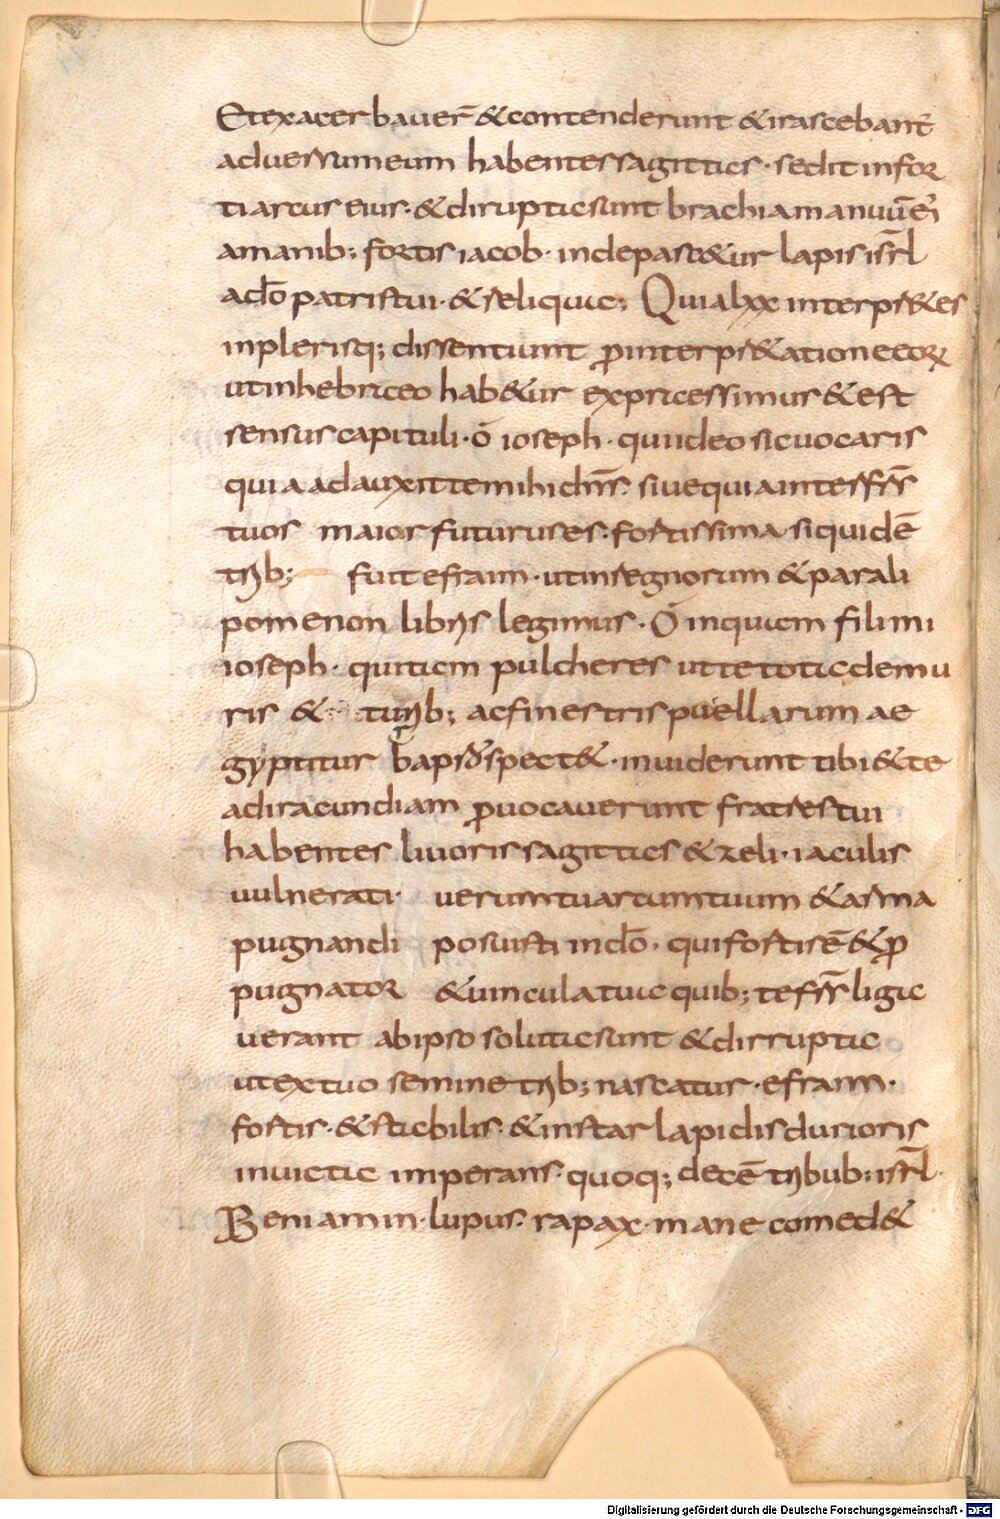 Et exacerbauer̄ & contenderunt & irascebant̄
aduersum eum habentes sagittas · sedit in for
ti arcus eius · & dirupta sunt brachia manuū ei᷒
a manib; fortis iacob · inde past&ur lapis isr̄l
a dō patris tui · & reliqua; Quia lxx interpr&es
in plerisq; dissentiunt ꝓ interpr&atione eoꝝ
ut in hebraeo hab&ur expraessimus & est
sensus capituli · ó ioseph · qui ideo sic uocaris
quia adauxit te mihi dn̄s · siue quia inter fr̄s
tuos maior futurus es · fortissima siquidē
trib; fuit efraim · ut in regnorum & parali
pomenon libris legimus · Ó inquam fili mi
ioseph · qui tam pulcher es ut te tota de mu
ris & turrib; ac finestris puellarum ae
gypti turba prospect& · inuiderunt tibi & te
ad iracundiam ꝓuocauerunt fratres tui
habentes liuoris sagittas & zeli · iaculis
uulnerati · uerum tu arcum tuum & arma
pugnandi posuisti in dō · qui fortis ē & ꝓ
pugnator & uincula tua quib; te fr̄s liga
uerant ab ipso soluta sunt & dirrupta
ut ex tuo semine trib; nascatur · efraim ·
fortis · & stabilis · & instar lapidis durioris
inuicta imperans · quoq; decē tribub; isr̄l ·
Beniamin · lupus · rapax · mane comed&
Digitalisierung gefördert durch die Deutsche Forschungsgemeinschaft - DFG